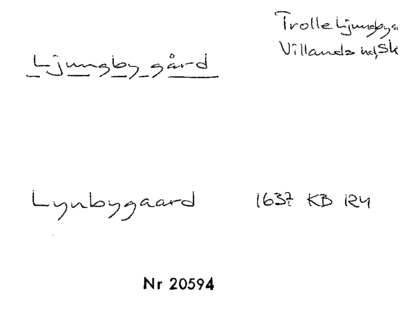 Trolle Ljungby
Villands hd, Sk
Ljungby gård
Lynbygaard 1637 KB 124
Nr 20594